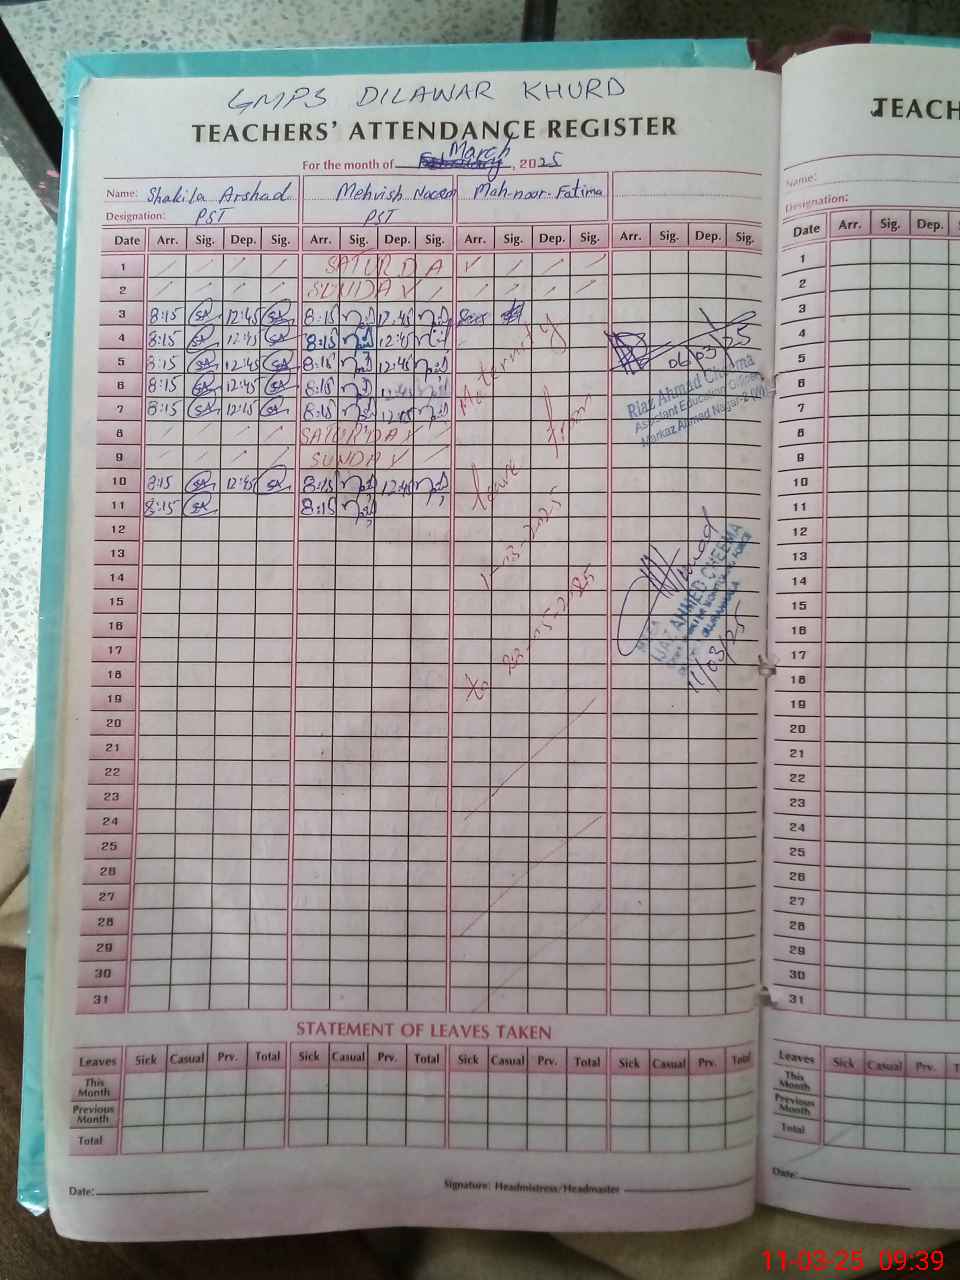 GMPS DILAWAR KHURD
TEACHERS' ATTENDANCE REGISTER
For the month of March, 2025
Name: Shakila Arshad Mehvish Naeem Mah-noor-Fatima
Designation: PST PST
Date Arr. Sig. Dep. Sig. Arr. Sig. Dep. Sig. Arr. Sig. Dep. Sig. Arr. Sig. Dep. Sig.
1 SATURDAY
2 SUNDAY
3 8:15 SA 12:45 SA 8:15 12:45
4 8:15 SA 12:45 SA 8:15 12:45
5 8:15 SA 12:45 SA 8:15 12:45
6 8:15 SA 12:45 SA 8:15 12:45
7 8:15 SA 12:45 SA 8:15 12:45
8 SATURDAY
9 SUNDAY
10 8:15 SA 12:45 SA 8:15 12:45
11 8:15 SA 8:15
12
13
14
15
16
17
18
19
20
21
22
23
24
25
26
27
28
29
30
31
Maternity
leave from
1-03-2025
to
06/03/25
Riaz Ahmad Cheema
Assistant Education Officer
Markaz Ahmad Nagar-2 (W)
IJAZ AHMED CHEEMA
11/03/25
STATEMENT OF LEAVES TAKEN
Leaves Sick Casual Prv. Total Sick Casual Prv. Total Sick Casual Prv. Total Sick Casual Prv. Total
This Month
Previous Month
Total
Date: Signature: Headmistress/Headmaster
TEACH
Name:
Designation:
Date Arr. Sig. Dep.
1
2
3
4
5
6
7
8
9
10
11
12
13
14
15
16
17
18
19
20
21
22
23
24
25
26
27
28
29
30
31
Leaves Sick Casual Prv.
This Month
Previous Month
Total
Date:
11-03-25 09:39